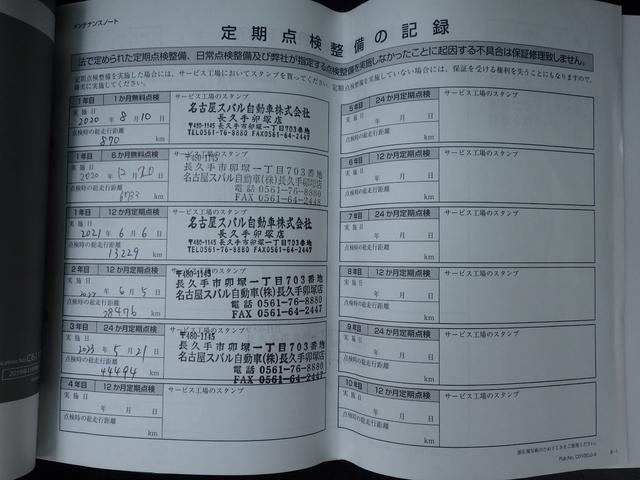 メンテナンスノート
定期点検整備の記録
法で定められた定期点検整備、日常点検整備及び弊社が指定する点検整備を実施しなかったことに起因する不具合は保証修理致しません。
定期点検整備を実施した場合には、サービス工場においてスタンプを買ってください。
定期点検整備を実施していない場合には、保証を受ける権利を失うこともなりますので、
確実に実施してください。
1年目 1か月無料点検
サービス工場のスタンプ
実施日
2020年 8月 10日
点検時の総走行距離
870 km
名古屋スバル自動車株式会社
長久手卯塚店
〒480-1145 長久手市卯塚一丁目703番地
TEL0561-76-8880 FAX0561-64-2447
1年目 6か月無料点検
サービス工場のスタンプ
実施日
2020年 12月 日
点検時の総走行距離
km
〒480-1145
長久手市卯塚一丁目703番地
名古屋スバル自動車(株)長久手卯塚店
電話 0561-76-8880
FAX 0561-64-2448
1年目 12か月定期点検
サービス工場のスタンプ
実施日
2021年 6月 6日
点検時の総走行距離
13229 km
名古屋スバル自動車株式会社
長久手卯塚店
〒480-1145 長久手市卯塚一丁目703番地
TEL0561-76-8880 FAX0561-64-2447
2年目 12か月定期点検
サービス工場のスタンプ
実施日
2022年 6月 5日
点検時の総走行距離
28476 km
〒480-1145
長久手市卯塚一丁目703番地
名古屋スバル自動車(株)長久手卯塚店
電話 0561-76-8880
FAX 0561-64-2447
3年目 24か月定期点検
サービス工場のスタンプ
実施日
2023年 5月 21日
点検時の総走行距離
44494 km
〒480-1145
長久手市卯塚一丁目703番地
名古屋スバル自動車(株)長久手卯塚店
電話 0561-76-8880
FAX 0561-64-2447
4年目 12か月定期点検
サービス工場のスタンプ
実施日
年 月 日
点検時の総走行距離
km
5年目 24か月定期点検
サービス工場のスタンプ
実施日
年 月 日
点検時の総走行距離
km
6年目 12か月定期点検
サービス工場のスタンプ
実施日
年 月 日
点検時の総走行距離
km
7年目 24か月定期点検
サービス工場のスタンプ
実施日
年 月 日
点検時の総走行距離
km
8年目 12か月定期点検
サービス工場のスタンプ
実施日
年 月 日
点検時の総走行距離
km
9年目 24か月定期点検
サービス工場のスタンプ
実施日
年 月 日
点検時の総走行距離
km
10年目 12か月定期点検
サービス工場のスタンプ
実施日
年 月 日
点検時の総走行距離
km